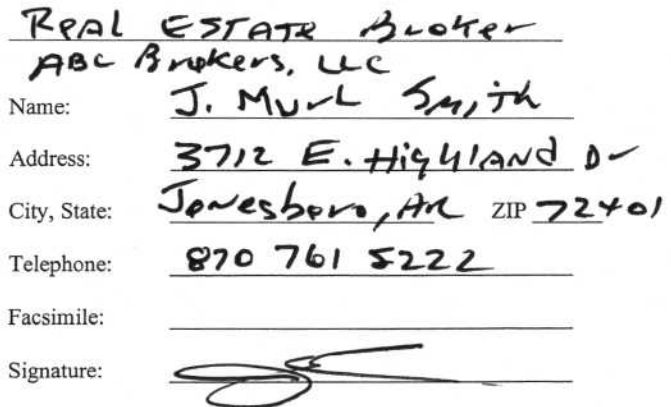 Real Estate Broker
ABC Brokers, LLC
Name: J. Murl Smith
Address: 3712 E. Highland Dr
City, State: Jonesboro, AR ZIP 72401
Telephone: 870 761 5222
Facsimile:
Signature: